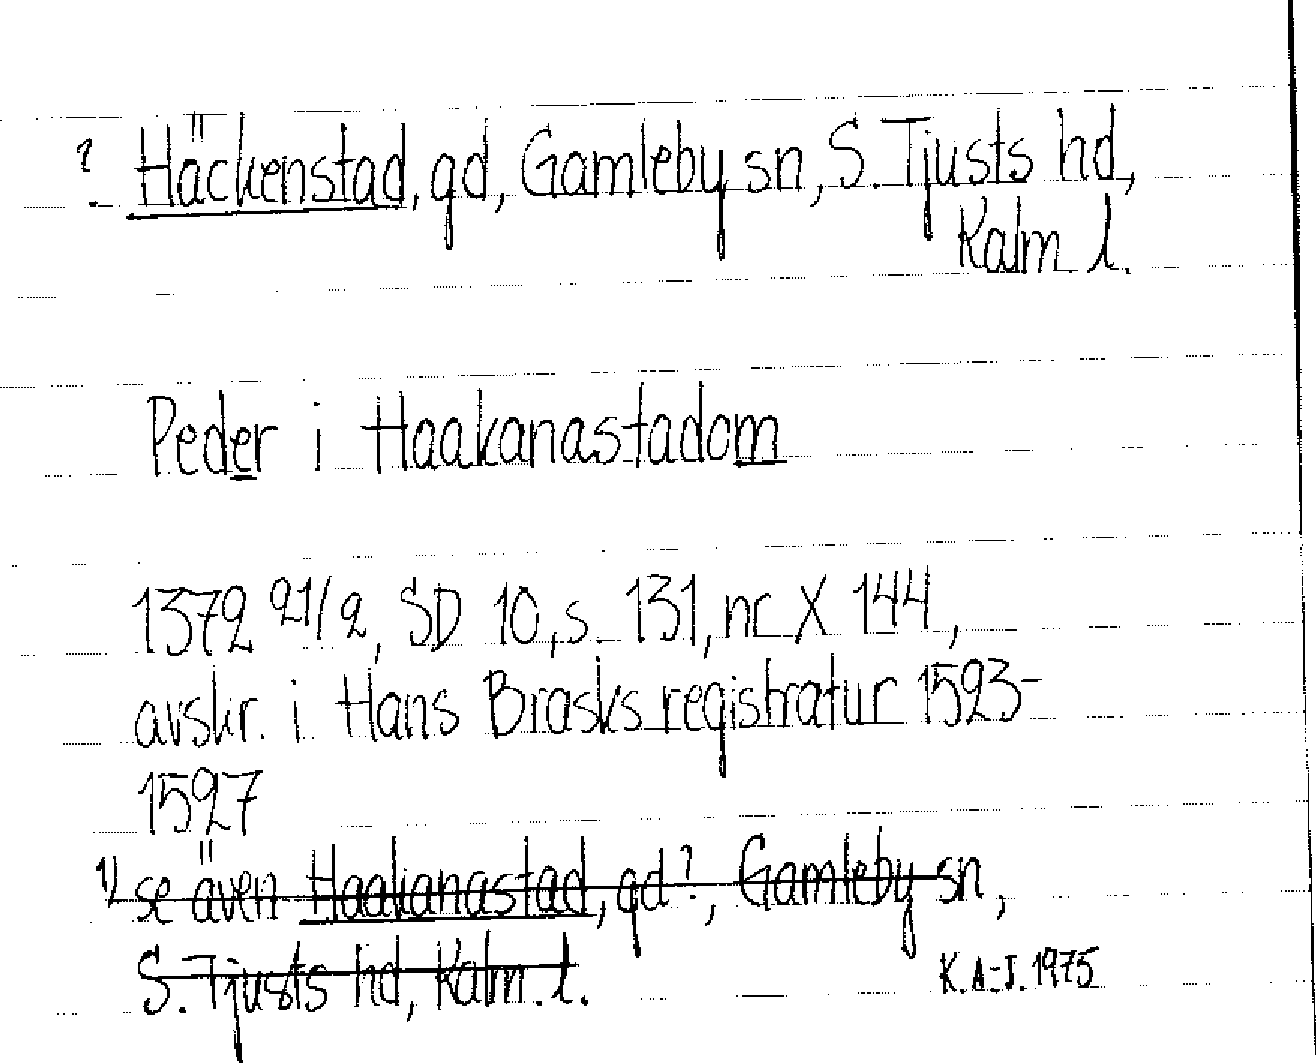 ? Häckenstad, gd, Gamleby sn, S. Tjusts hd,
Kalm l.
Peder i Haakanastadom
1372 21/2, SD 10, s. 131, nr X 144,
avskr. i Hans Brasks registratur 1523-
1527
1) se även Haakanastad, gd?, Gamleby sn,
S. Tjusts hd, Kalm. l.
K.A-J. 1975